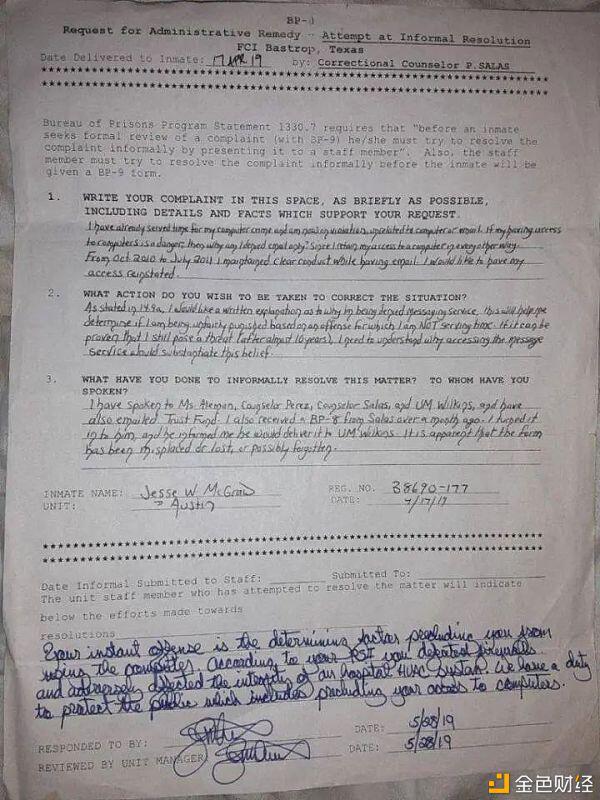 BP-8
Request for Administrative Remedy - Attempt at Informal Resolution
FCI Bastrop, Texas
Date Delivered to Inmate: 17 APR 19 by: Correctional Counselor P.SALAS
************************************************************
************************************************************
Bureau of Prisons Program Statement 1330.7 requires that "before an inmate
seeks formal review of a complaint (with BP-9) he/she must try to resolve the
complaint informally by presenting it to a staff member". Also, the staff
member must try to resolve the complaint informally before the inmate will be
given a BP-9 form.
1. WRITE YOUR COMPLAINT IN THIS SPACE, AS BRIEFLY AS POSSIBLE,
INCLUDING DETAILS AND FACTS WHICH SUPPORT YOUR REQUEST.
I have already served time for my computer crime and am now on violation, unrelated to computer or email. If my having access
to computers is a danger, then why am I denied email only? Since I retain my access to a computer in every other way.
From Oct 2010 to July 2011 I maintained clear conduct while having email. I would like to have my
access reinstated.
2. WHAT ACTION DO YOU WISH TO BE TAKEN TO CORRECT THE SITUATION?
As stated in 14.9a, I would like a written explanation as to why I'm being denied messaging service, this will help me
determine if I am being unfairly punished based on an offense for which I am NOT serving time. If it can be
proven that I still pose a threat (after almost 10 years), I need to understand why accessing the message
service would substantiate this belief.
3. WHAT HAVE YOU DONE TO INFORMALLY RESOLVE THIS MATTER? TO WHOM HAVE YOU
SPOKEN?
I have spoken to Ms. Aleman, Counselor Perez, Counselor Salas, and UM Wilkins, and have
also emailed Trust Fund. I also received a BP-8 from Salas over a month ago. I turned it
in to him, and he informed me he would deliver it to UM Wilkins. It is apparent that the form
has been misplaced or lost, or possibly forgotten.
INMATE NAME: Jesse W. McGraw REG. NO. 38690-177
UNIT: Austin DATE: 4/17/19
************************************************************
************************************************************
Date Informal Submitted to Staff: Submitted To:
The unit staff member who has attempted to resolve the matter will indicate
below the efforts made towards
resolutions
Your instant offense is the determining factor precluding you from
using the computer. According to your PSI you defeated firewalls
and adversely affected the integrity of an hospital HVAC system. We have a duty
to protect the public which includes precluding your access to computers.
RESPONDED TO BY: DATE: 5/28/19
REVIEWED BY UNIT MANAGER: DATE: 5/28/19
金色财经